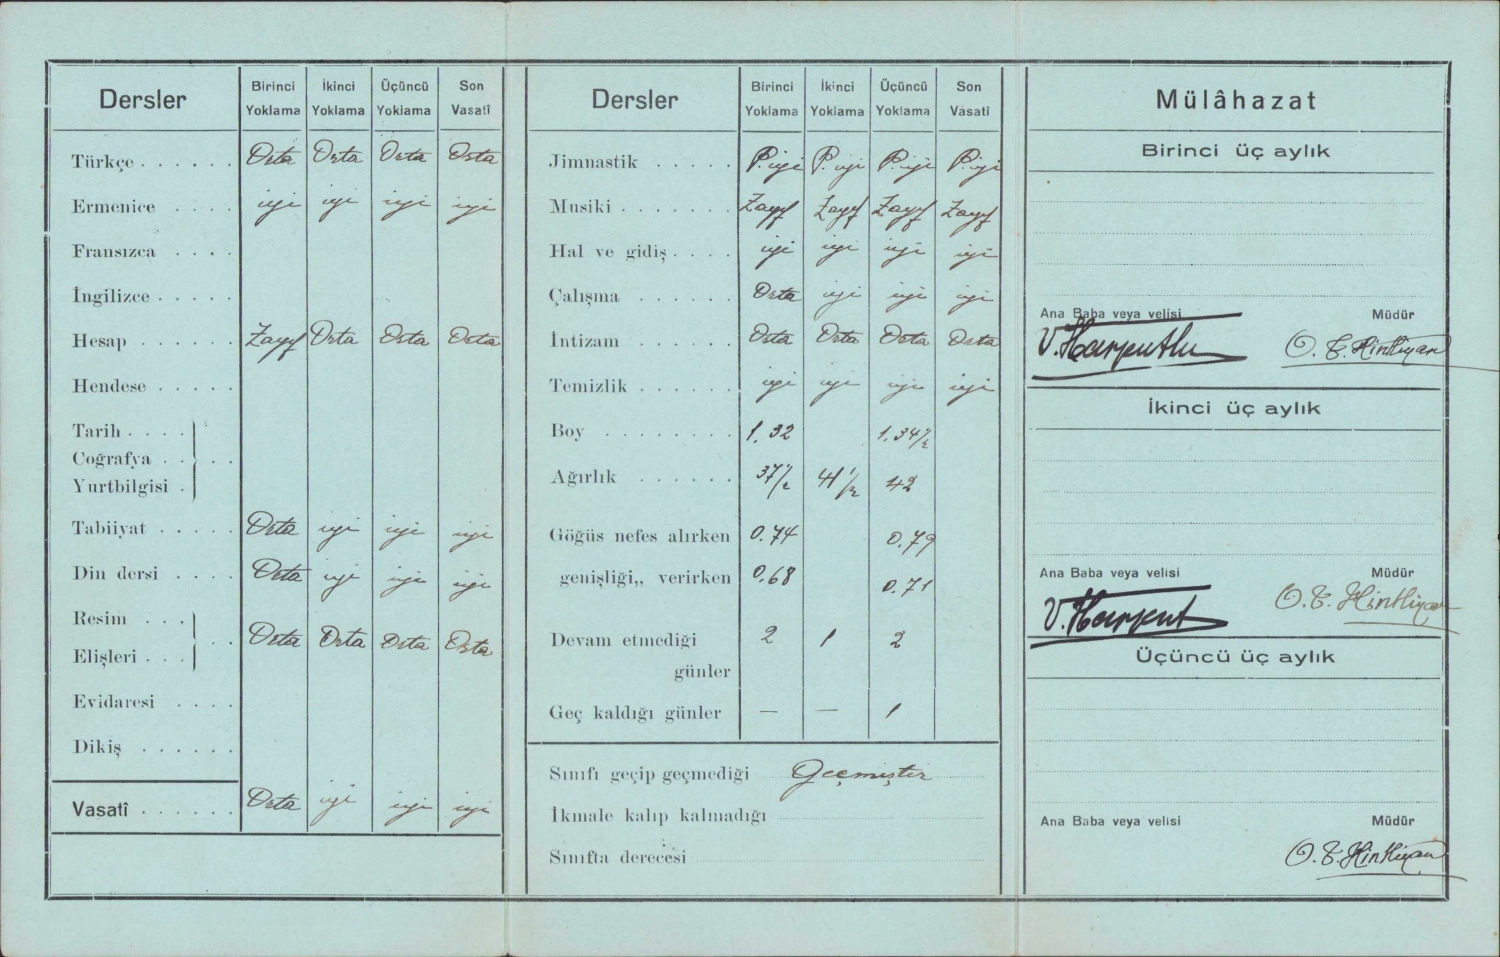 Dersler Birinci Yoklama İkinci Yoklama Üçüncü Yoklama Son Vasatî
Türkçe . . . . . . Orta Orta Orta Orta
Ermenice . . . . iyi iyi iyi iyi
Fransızca . . . .
İngilizce . . . . .
Hesap . . . . . . Zayıf Orta Orta Orta
Hendese . . . . .
Tarih . . . .
Coğrafya . . . .
Yurtbilgisi .
Tabiiyat . . . . . Orta iyi iyi iyi
Din dersi . . . . Orta iyi iyi iyi
Resim . . .
Elişleri . . . Orta Orta Orta Orta
Evidaresi . . . .
Dikiş . . . . . .
Vasatî . . . . . . Orta iyi iyi iyi
Dersler Birinci Yoklama İkinci Yoklama Üçüncü Yoklama Son Vasatî
Jimnastik . . . . . P. iyi P. iyi P. iyi P. iyi
Musiki . . . . . . . Zayıf Zayıf Zayıf Zayıf
Hal ve gidiş . . . . iyi iyi iyi iyi
Çalışma . . . . . . Orta iyi iyi iyi
İntizam . . . . . . Orta Orta Orta Orta
Temizlik . . . . . . iyi iyi iyi iyi
Boy . . . . . . . . 1.32 1.34 1/2
Ağırlık . . . . . . 37 1/2 41 1/2 42
Göğüs nefes alırken 0.74 0.79
genişliği„ verirken 0.68 0.71
Devam etmediği 2 1 2
günler
Geç kaldığı günler — — 1
Sınıfı geçip geçmediği Geçmiştir
İkmale kalıp kalmadığı
Sınıfta derecesi
Mülâhazat
Birinci üç aylık
Ana Baba veya velisi Müdür
V. Harputlu O. T. Hintliyan
İkinci üç aylık
Ana Baba veya velisi Müdür
V. Harput O. T. Hintliyan
Üçüncü üç aylık
Ana Baba veya velisi Müdür
O. T. Hintliyan